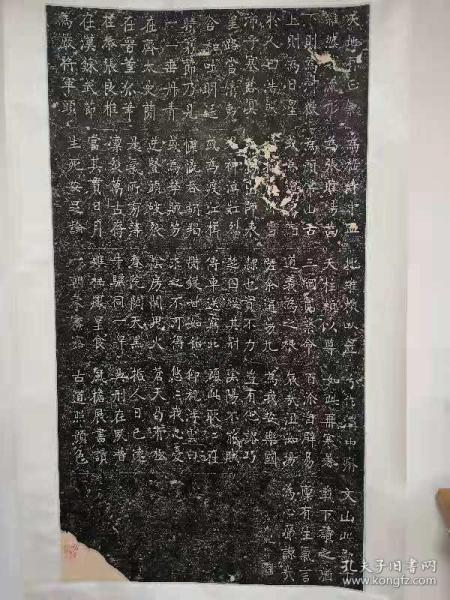 天地有正氣
雜然賦流形
下則為河嶽
上則為日星
於人曰浩然
沛乎塞蒼冥
皇路當清夷
含和吐明庭
時窮節乃見
一一垂丹青
在齊太史簡
在晉董狐筆
在秦張良椎
在漢蘇武節
為嚴將軍頭
為嵇侍中血
為張睢陽齒
為顏常山舌
或為
雪
出師表
鬼神泣壯烈
或為渡江楫
慷慨吞胡羯
或為擊賊笏
逆豎頭破裂
是氣所磅礴
凜烈萬古存
當其貫日月
生死安足論
地維賴以立
天柱賴以尊
三綱實系命
道義為之根
嗟余遘陽九
隸也實不力
楚囚纓其冠
傳車送窮北
鼎鑊甘如飴
求之不可得
陰房闃鬼火
春院閟天黑
牛驥同一皁
雞栖鳳皇食
一朝蒙霧露
分作溝中瘠
如此再寒暑
百沴自辟易
哀哉沮洳場
為我安樂國
豈有他謬巧
陰陽不能賊
顧此耿耿在
仰視浮雲白
悠悠我心憂
蒼天曷有極
哲人日已遠
典刑在夙昔
風檐展書讀
古道照顏色
文山此歌
凜有生氣言
為心
孔夫子旧书网
kongfz.com